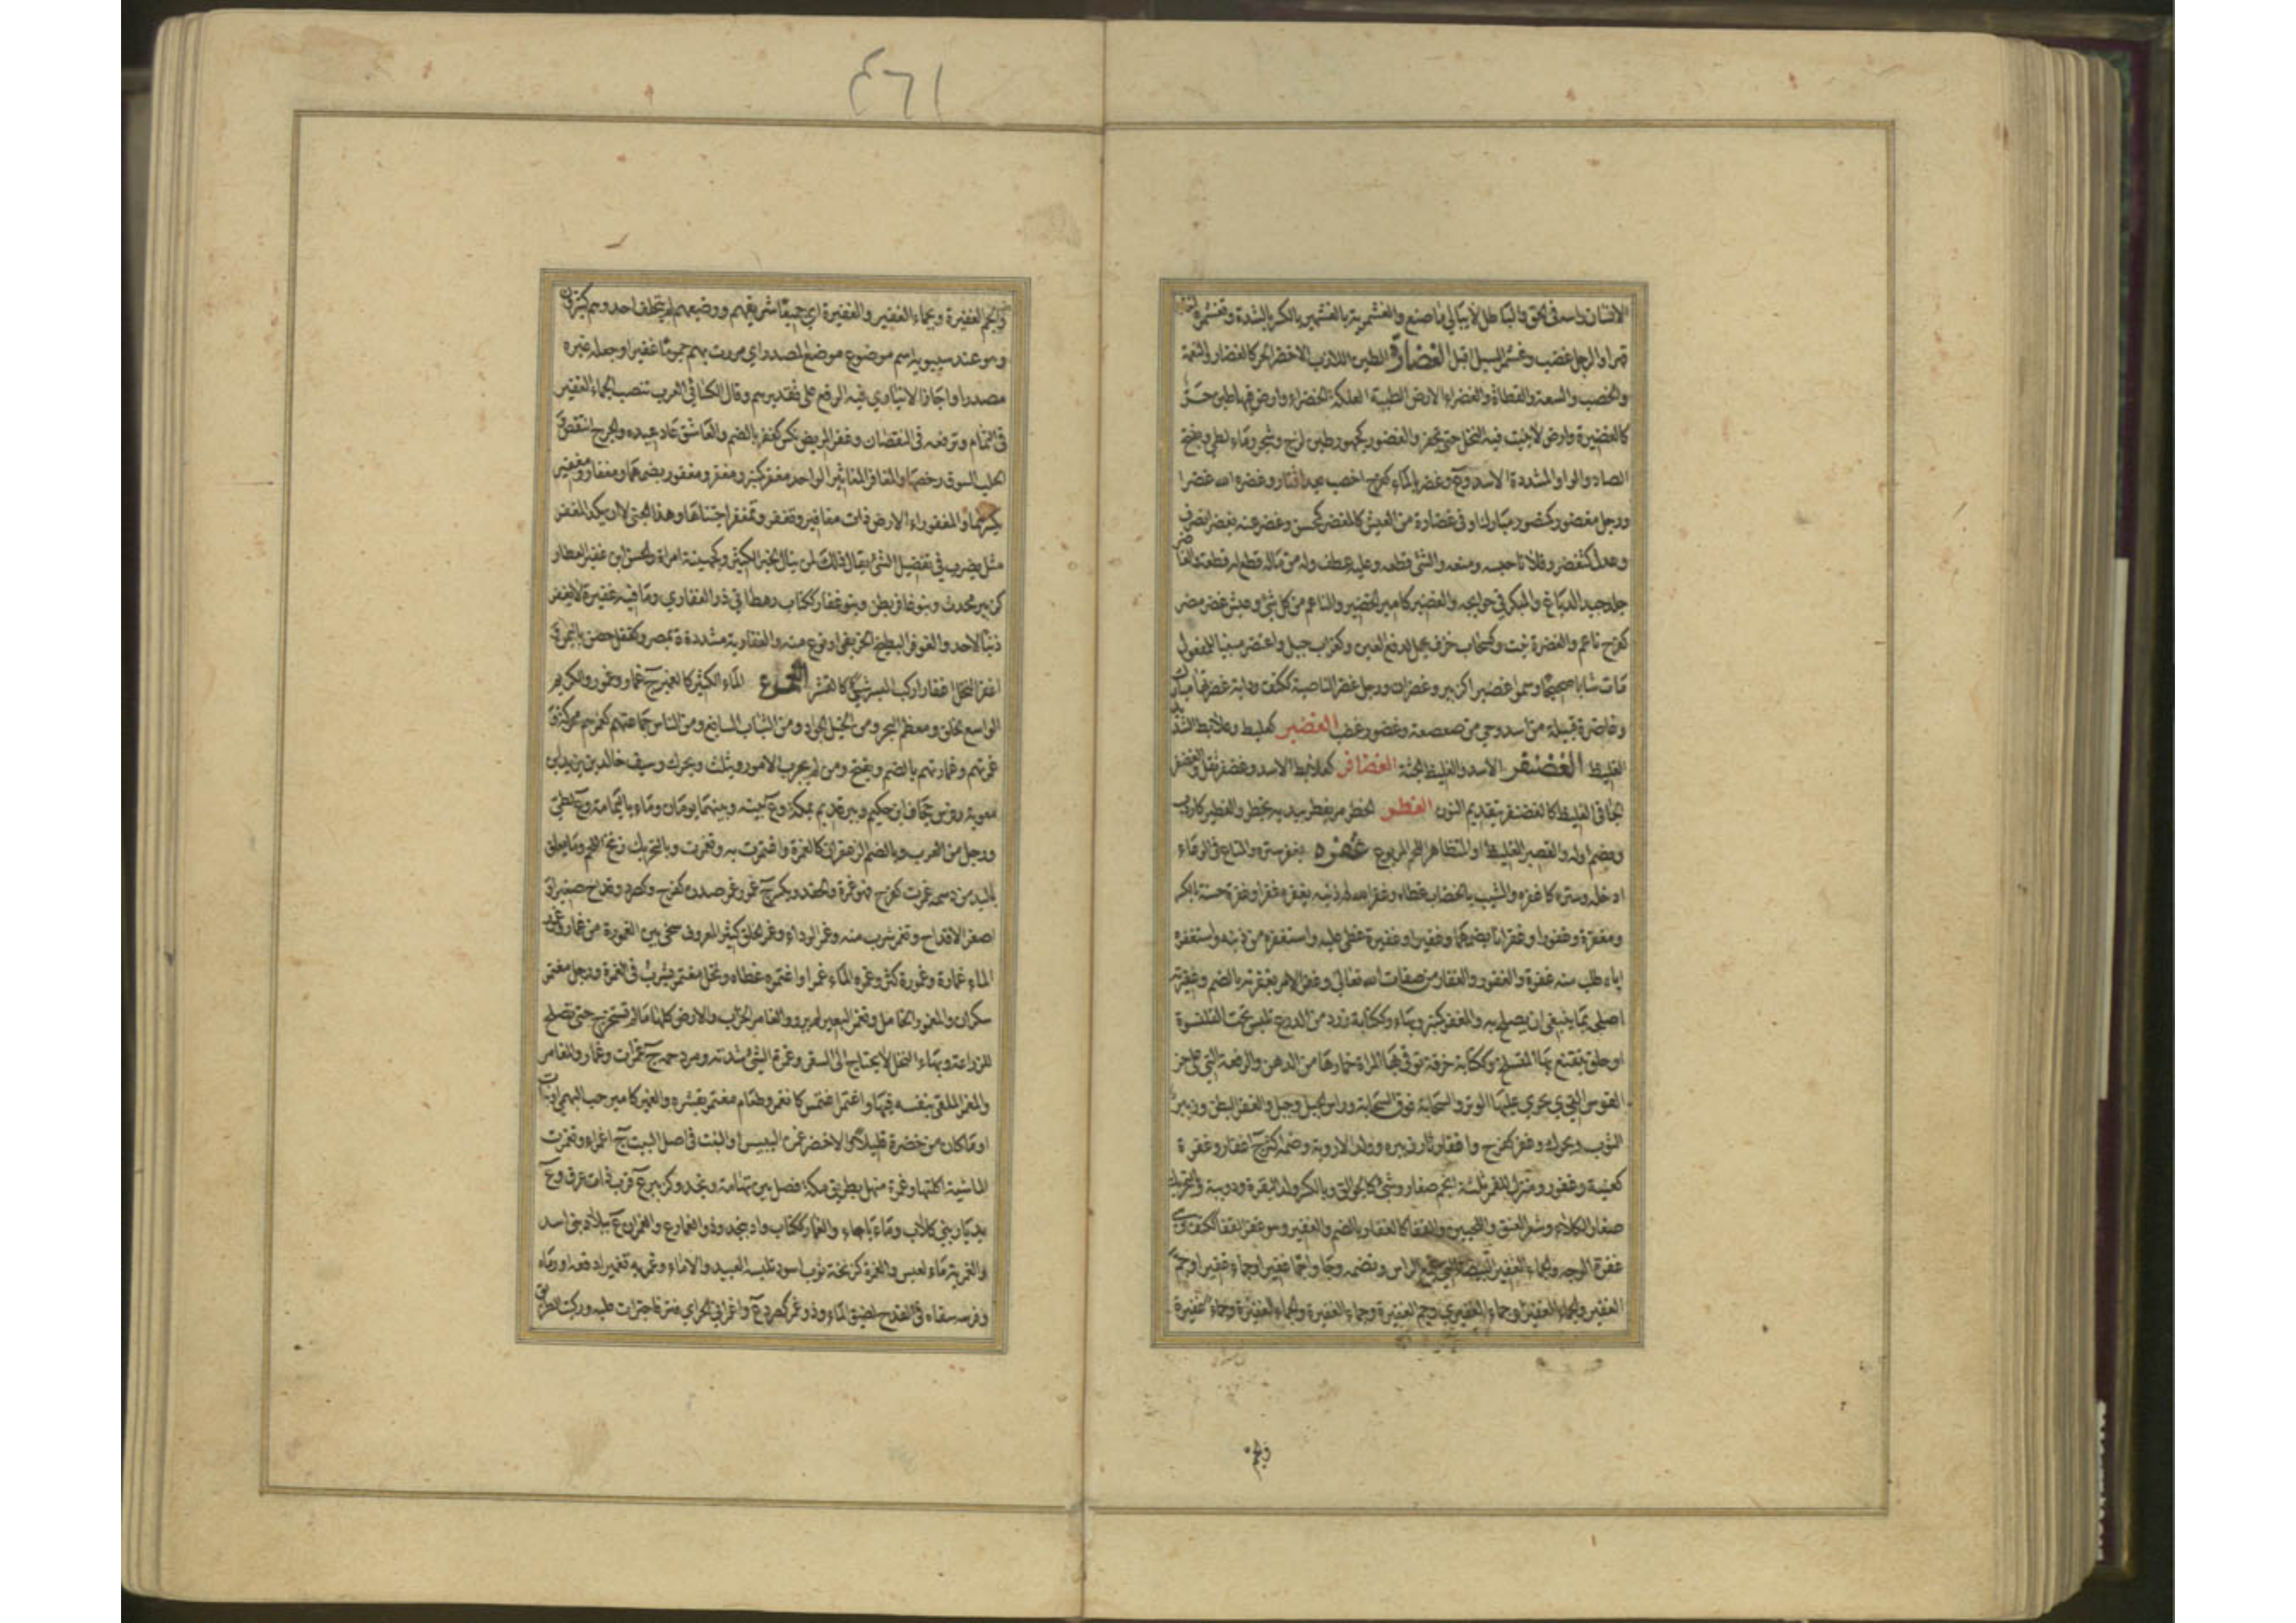 الانسان راسه في الحق والباطل لا يبالي ما صنع والغشمرية بالغشمير بالكسر الشدة وتغشمره اخذه
قهرا والرجل غضب وغشمر السيل اقبل الغضارة الطين اللازب الاخضر الحر كالغضار والنعمة
والخصب والسعة والقطاة والغضراء الارض الطيبة العلكة الخضراء وارض فيها طين حر
كالغضيرة وارض لا ينبت فيها النخل حتى تحفر والغضور كجهور طين لزج وشجر وماء لطي وبفتح
الضاد والواو المشددة الاسد وع وغضر بالمال كفرح اخصب بعد اقتار وغضره الله غضرا
ورجل مغضور كمنصور مبارك او في غضارة من العيش كالمغضر كمحسن وغضر عنه يغضر انصرف
وعدل كتغضر وفلانا حبسه ومنعه والشئ قطعه وعليه عطف وله من ماله قطع له قطعة والغاضر
جلد جيد الدباغ والمبكر في حوايجه والغضير كامير الخضير والناعم من كل شئ وعيش غضر مضر
كفرح ناعم والغضرة نبت وكسحاب خزف يحمل لدفع العين وكغراب جبل واغتضر مبنيا للمفعول
مات شابا صحيحا وسموا غضيرا كزبير وغضران ورجل غضر الناصية ككتف ودابة غضرتها مبارك
وغاضرة قبيلة من اسد وحي من صعصعة وغضور غضب الغضبر كهلبط وعلابط الشديد
الغليظ الغضنفر الاسد والغليظ الجثة الغضافر كعلابط الاسد وغضفر ثقل والغضفر
الجافي الغليظ كالغضنفر بتقديم النون الغطر الخطر مر يغطر بيديه يخطر والغطير كاردب
ويضم اوله والقصير الغليظ او المتظاهر اللحم المربوع غفره يغفره ستره والمتاع في الوعاء
ادخله وستره كاغفره والشيب بالخضاب غطاه وغفر الله له ذنبه يغفره غفرا وغفرة حسنة بالكسر
ومغفرة وغفورا وغفرانا بضمهما وغفيرا وغفيرة غطى عليه واستغفره من ذنبه واستغفره
اياه طلب منه غفره والغفور والغفار من صفات الله تعالى وغفر الامر بغفرته بالضم وغفيرته
اصلحه بما ينبغي ان يصلح به والمغفر كمنبر وبهاء وككتابة زرد من الدرع يلبس تحت القلنسوة
او حلق يتقنع بها المتسلح وككتابة خرقة توقي بها المراة خمارها من الدهن والرقعة التي على حز
القوس الذي يجري عليها الوتر والسحابة فوق السحابة وراس الجبل وجبل والغفر البطن وزيبر
الثوب ويحرك وغفر كفرح واغفار ثار زيبره وولد الاروية وضمه اكثر ج اغفار وغفرة
كعنبة وغفور ومنزل للقمر ثلثة انجم صغار وشئ كالجوالق وبالكسر ولد البقرة ودويبة وبالتحريك
صغار الكلاء وشعر العنق واللحيين والقفا كالغفار بالضم والغفير وهو غفر القفا ككتف وهي
غفرة الوجه والجماء الغفير البيضة التي تجمع الراس وتضمه وجاوا جما غفيرا وجماء غفيرا وجم
الغفير وجماء الغفير او جماء الغفيري وجم الغفيرة وجماء الغفيرة والجماء الغفيرة وجماء غفيرة
والجم
٤٦١
والجم الغفيرة وبجماء الغفير والغفيرة اي جميعا شريفهم ووضيعهم لم يتخلف احد وهم كثيرون
وهو عند سيبويه اسم موضوع موضع المصدر اي مررت بهم جموما غفيرا وجعله غيره
مصدرا واجاز ابن الانباري فيه الرفع على تقدير هم وقال الكسائي العرب تنصب الجماء الغفير
في التمام وترفعه في النقصان وغفر المريض نكس كغفر بالضم والعاشق عاد عيده والجرح انتقض
الجلب السوق رخصها والمغافر المغاثير الواحد مغفر كمنبر ومغفر ومغفور بضمهما ومغفار ومغفير
بكسرهما والمغفوراء الارض ذات مغافير وتغفر وتمغفر اجتناها وهذا الجنى لا ان يكد المغفر
مثل يضرب في تفضيل الشئ يقال ذلك لمن ينال الخير الكثير وكجهينة امراة والحسن ابن غفير العطار
كزبير محدث وبنو غافر بطن وبنو غفار ككتاب رهط ابي ذر الغفاري وما فيه غفيرة لا يغفر
ذنبا لاحد والغوفر البطيخ الخريفي او نوع منه والغفارية مشددة ة بمصر وكقفل حصن باليمن
اغفر النخل اغفارا ركب البسر شئ كالقشر الغمر الماء الكثير كالغمير ج غمار وغمور والكريم
الواسع الخلق ومعظم البحر ومن الخيل الجواد ومن الثياب السابغ ومن الناس جماعتهم كغمرهم محركة
غمرتهم وغمارتهم بالضم ويفتح ومن لم يجرب الامور ويثلث ويحرك وسيف خالد بن يزيد ابن
معوية وفرس جحاف ابن حكيم وبير قديم بمكة وع بينه وبينها يومان وماء باليمامة وع لطي
ورجل من العرب وبالضم الزعفران كالغمرة واغتمرت به وتغمرت وبالتحريك زنخ اللحم وما يعلق
باليد من دسمه غمرت كفرح فهو غمرة والحقد ويكسر ج غمور وغمر صدره كفرح وكصرد قدح صغير او
اصغر الاقداح وتغمر شرب منه وغمر الرداء وغمر الخلق كثير المعروف سخي بين الغمورة من غمار وغمور
الماء غمارة وغمورة كثر وغمره الماء غمرا واغتمره غطاه ونخل مغتمر يشرب في الغمرة ورجل مغتمر
سكران والمغمور الخامل وتغمر البعير لم يرو والغامر الخراب والارض كلها ما لم تستخرج حتى تصلح
للزراعة وبهاء النخل لا يحتاج الى السقي وغمرة الشئ شدته ومزدحمه ج غمرات وغمار والمغامر
والمغمر الملقي بنفسه فيها واغتمر اغتمس كانغمر وطعام مغتمر بقشره والغمير كامير حب البهمى او نبات
او ما كان من خضرة قليلا او الاخضر غمره اليبيس او النبت في اصل النبت ج اغمراء وتغمرت
الماشية اكلتها وغمرة منهل بطريق مكة فصل بين تهامة ونجد وكزبير ع قرب ذات عرق وع
بديار بني كلاب وماء باجاء والغمار ككتاب واد بنجد وذو الغمار ع والغمران ع ببلاد بني اسد
والغمرية ماء لعبس والغمرة كزنخة ثوب اسود تلبسه العبيد والاماء وغمر به تغميرا دفعه او رماه
وفرسه سقاه في القدح لضيق الماء وذو غمر كصرد ع واغمرني الحر اي فتر فاجترات عليه وركبت الطريق